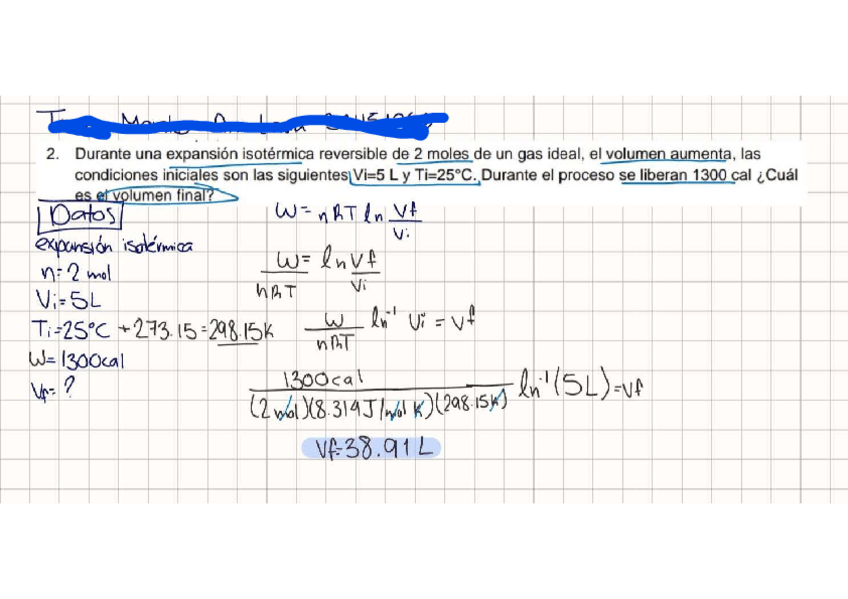 2. Durante una expansión isotérmica reversible de 2 moles de un gas ideal, el volumen aumenta, las
condiciones iniciales son las siguientes Vi=5 L y Ti=25°C. Durante el proceso se liberan 1300 cal ¿Cuál
es el volumen final?
Datos
expansión isotérmica
n=2 mol
Vi=5L
Ti=25°C +273.15=298.15K
W=1300cal
Vf=?
W=nRT ln Vf/Vi
W/nRT = ln Vf/Vi
W/nRT ln⁻¹ Vi = Vf
1300cal/(2 mol)(8.314J/mol K)(298.15K) ln⁻¹(5L)=Vf
Vf=38.91L